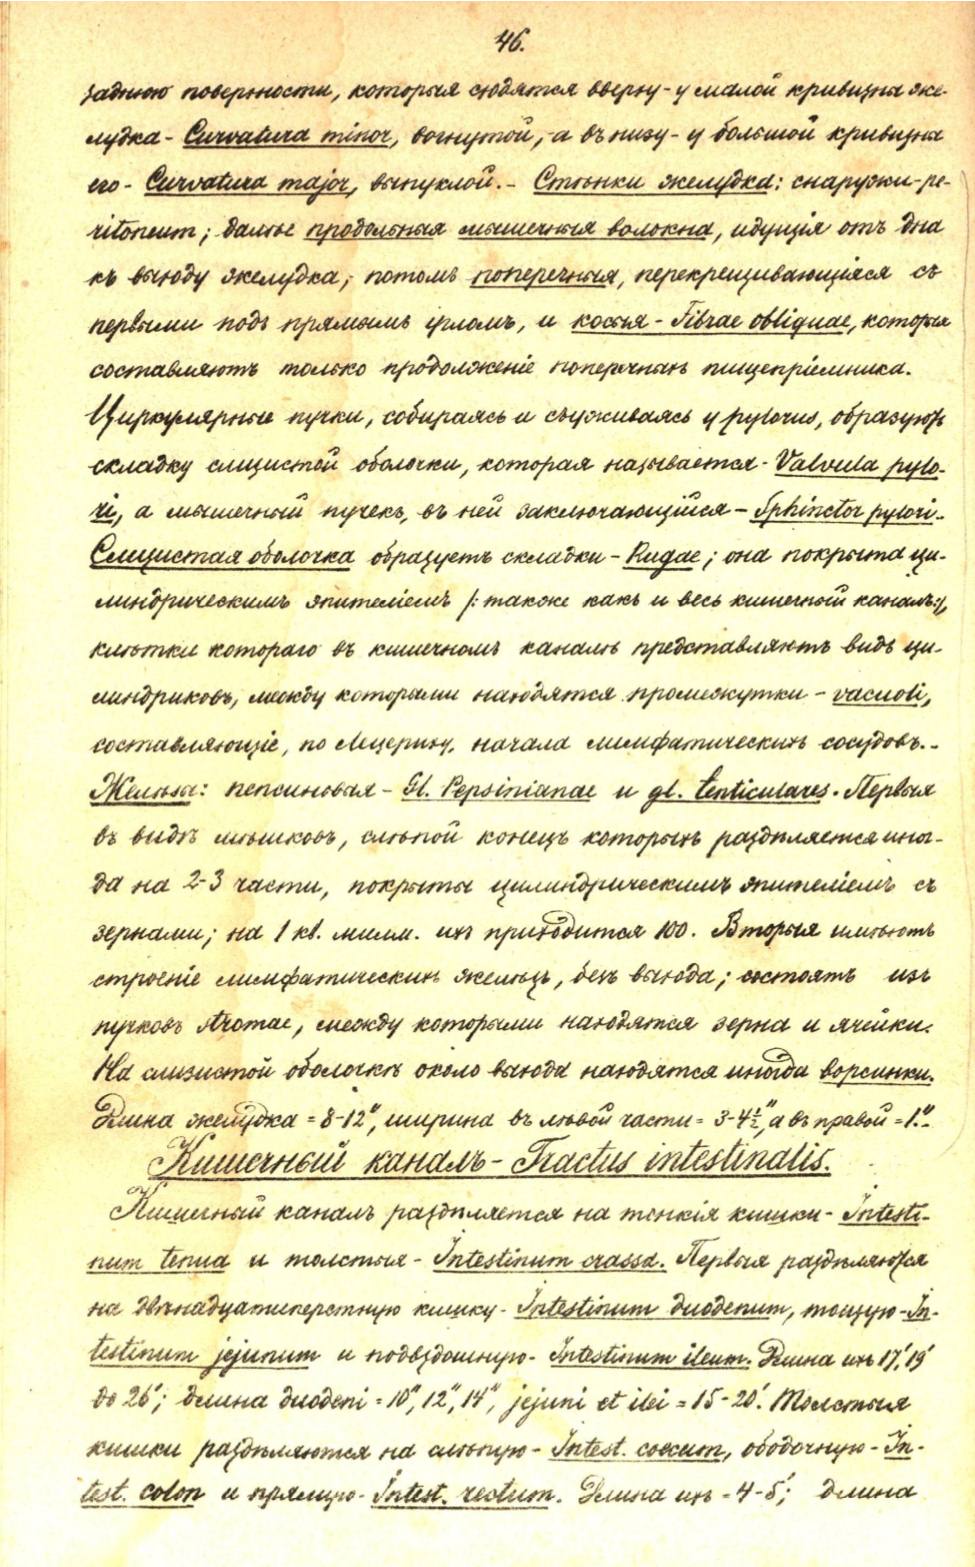 46.
заднюю поверхности, которыя сходятся вверху - у малой кривизны же-
лудка - Curvatura minor, вогнутой, - а въ низу - у большой кривизны
его - Curvatura major, выпуклой. - Стѣнки желудка: снаружи - pe-
ritoneum; далѣе продольныя мышечныя волокна, идущія отъ дна
къ выходу желудка; потомъ поперечныя, перекрещивающіяся съ
первыми подъ прямымъ угломъ, и косыя - Fibrae obliquae, которыя
составляютъ только продолженіе поперечныхъ пищепріемника.
Циркулярные пучки, собираясь и съуживаясь у pylorus, образуютъ
складку слизистой оболочки, которая называется - Valvula pylo-
ri, а мышечный пучекъ, въ ней заключающійся - Sphinctor pylori. -
Слизистая оболочка образуетъ складки - Rugae; она покрыта ци-
линдрическимъ эпителіемъ /: также какъ и весь кишечный каналъ:/,
клѣтки котораго въ кишечномъ каналѣ представляютъ видъ ци-
линдриковъ, между которыми находятся промежутки - vacuoli,
составляющіе, по начала лимфатическихъ сосудовъ. -
Железы: пепсиновыя - Gl. Pepsinianae и gl. lenticulares. Первыя
въ видѣ мѣшковъ, слѣпой конецъ которыхъ раздѣляется иног-
да на 2-3 части, покрыты цилиндрическимъ эпителіемъ съ
зернами; на 1 кв. милм. ихъ приходится 100. Вторыя имѣютъ
строеніе лимфатическихъ железъ, безъ выхода; состоятъ изъ
пучковъ stromae, между которыми находятся зерна и ячейки.
На слизистой оболочкѣ около выхода находятся иногда ворсинки.
Длина желудка = 8-12", ширина въ лѣвой части = 3-4½", а въ правой = 1". -
Кишечный каналъ - Tractus intestinalis.
Кишечный каналъ раздѣляется на тонкія кишки - Intesti-
num tenua и толстыя - Intestinum crassa. Первыя раздѣляются
на двѣнадцатиперстную кишку - Intestinum duodenum, тощую - In-
testinum jejunum и подвздошную - Intestinum ileum. Длина ихъ 17', 19'
до 26'; длина duodeni = 10", 12", 14", jejuni et ilei = 15-20'. Толстыя
кишки раздѣляются на слѣпую - Intest. coecum, ободочную - In-
test. colon и прямую - Intest. rectum. Длина ихъ = 4-5'; длина